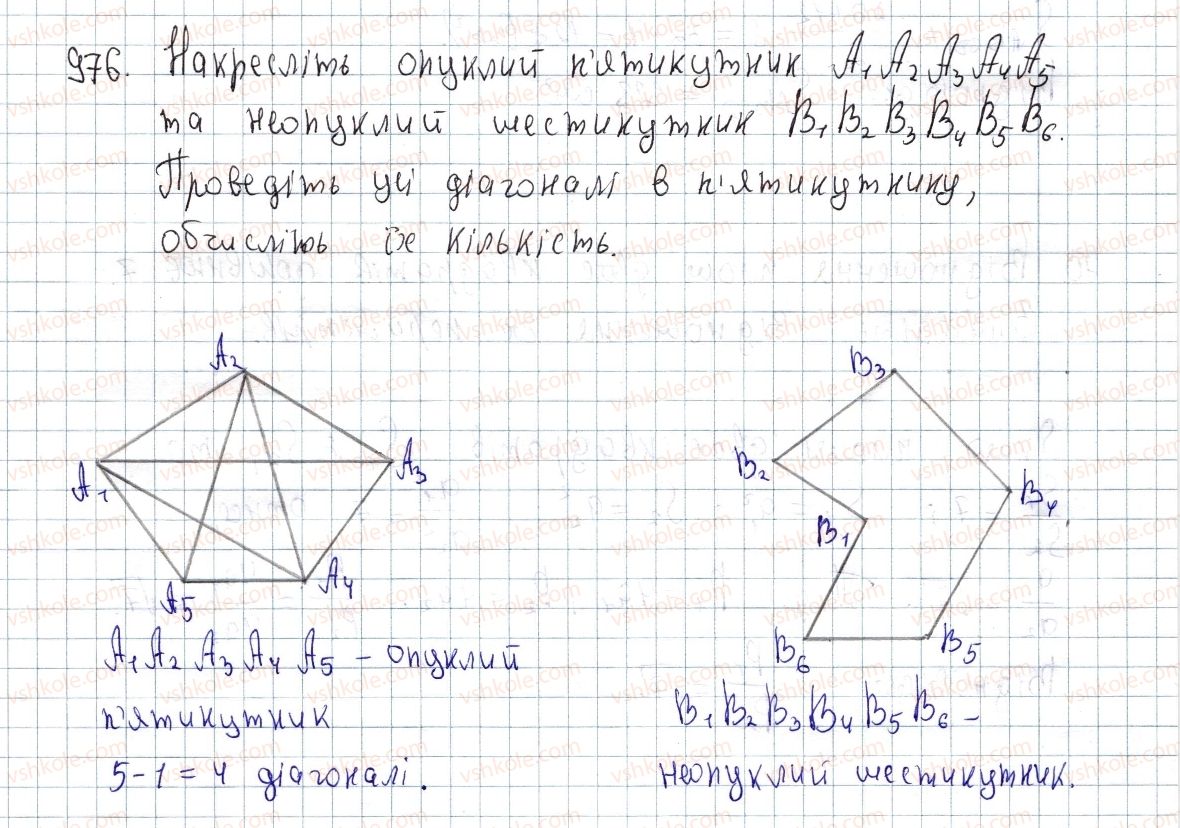 976. Накресліть опуклий п'ятикутник A₁A₂A₃A₄A₅
та неопуклий шестикутник B₁B₂B₃B₄B₅B₆.
Проведіть усі діагоналі в п'ятикутнику,
обчисліть їх кількість.
A₂
B₃
A₁
A₃
B₂
B₄
B₁
A₅
A₄
B₆
B₅
A₁A₂A₃A₄A₅ – опуклий
п'ятикутник
5-1=4 діагоналі.
B₁B₂B₃B₄B₅B₆ –
неопуклий шестикутник.
vshkole.com